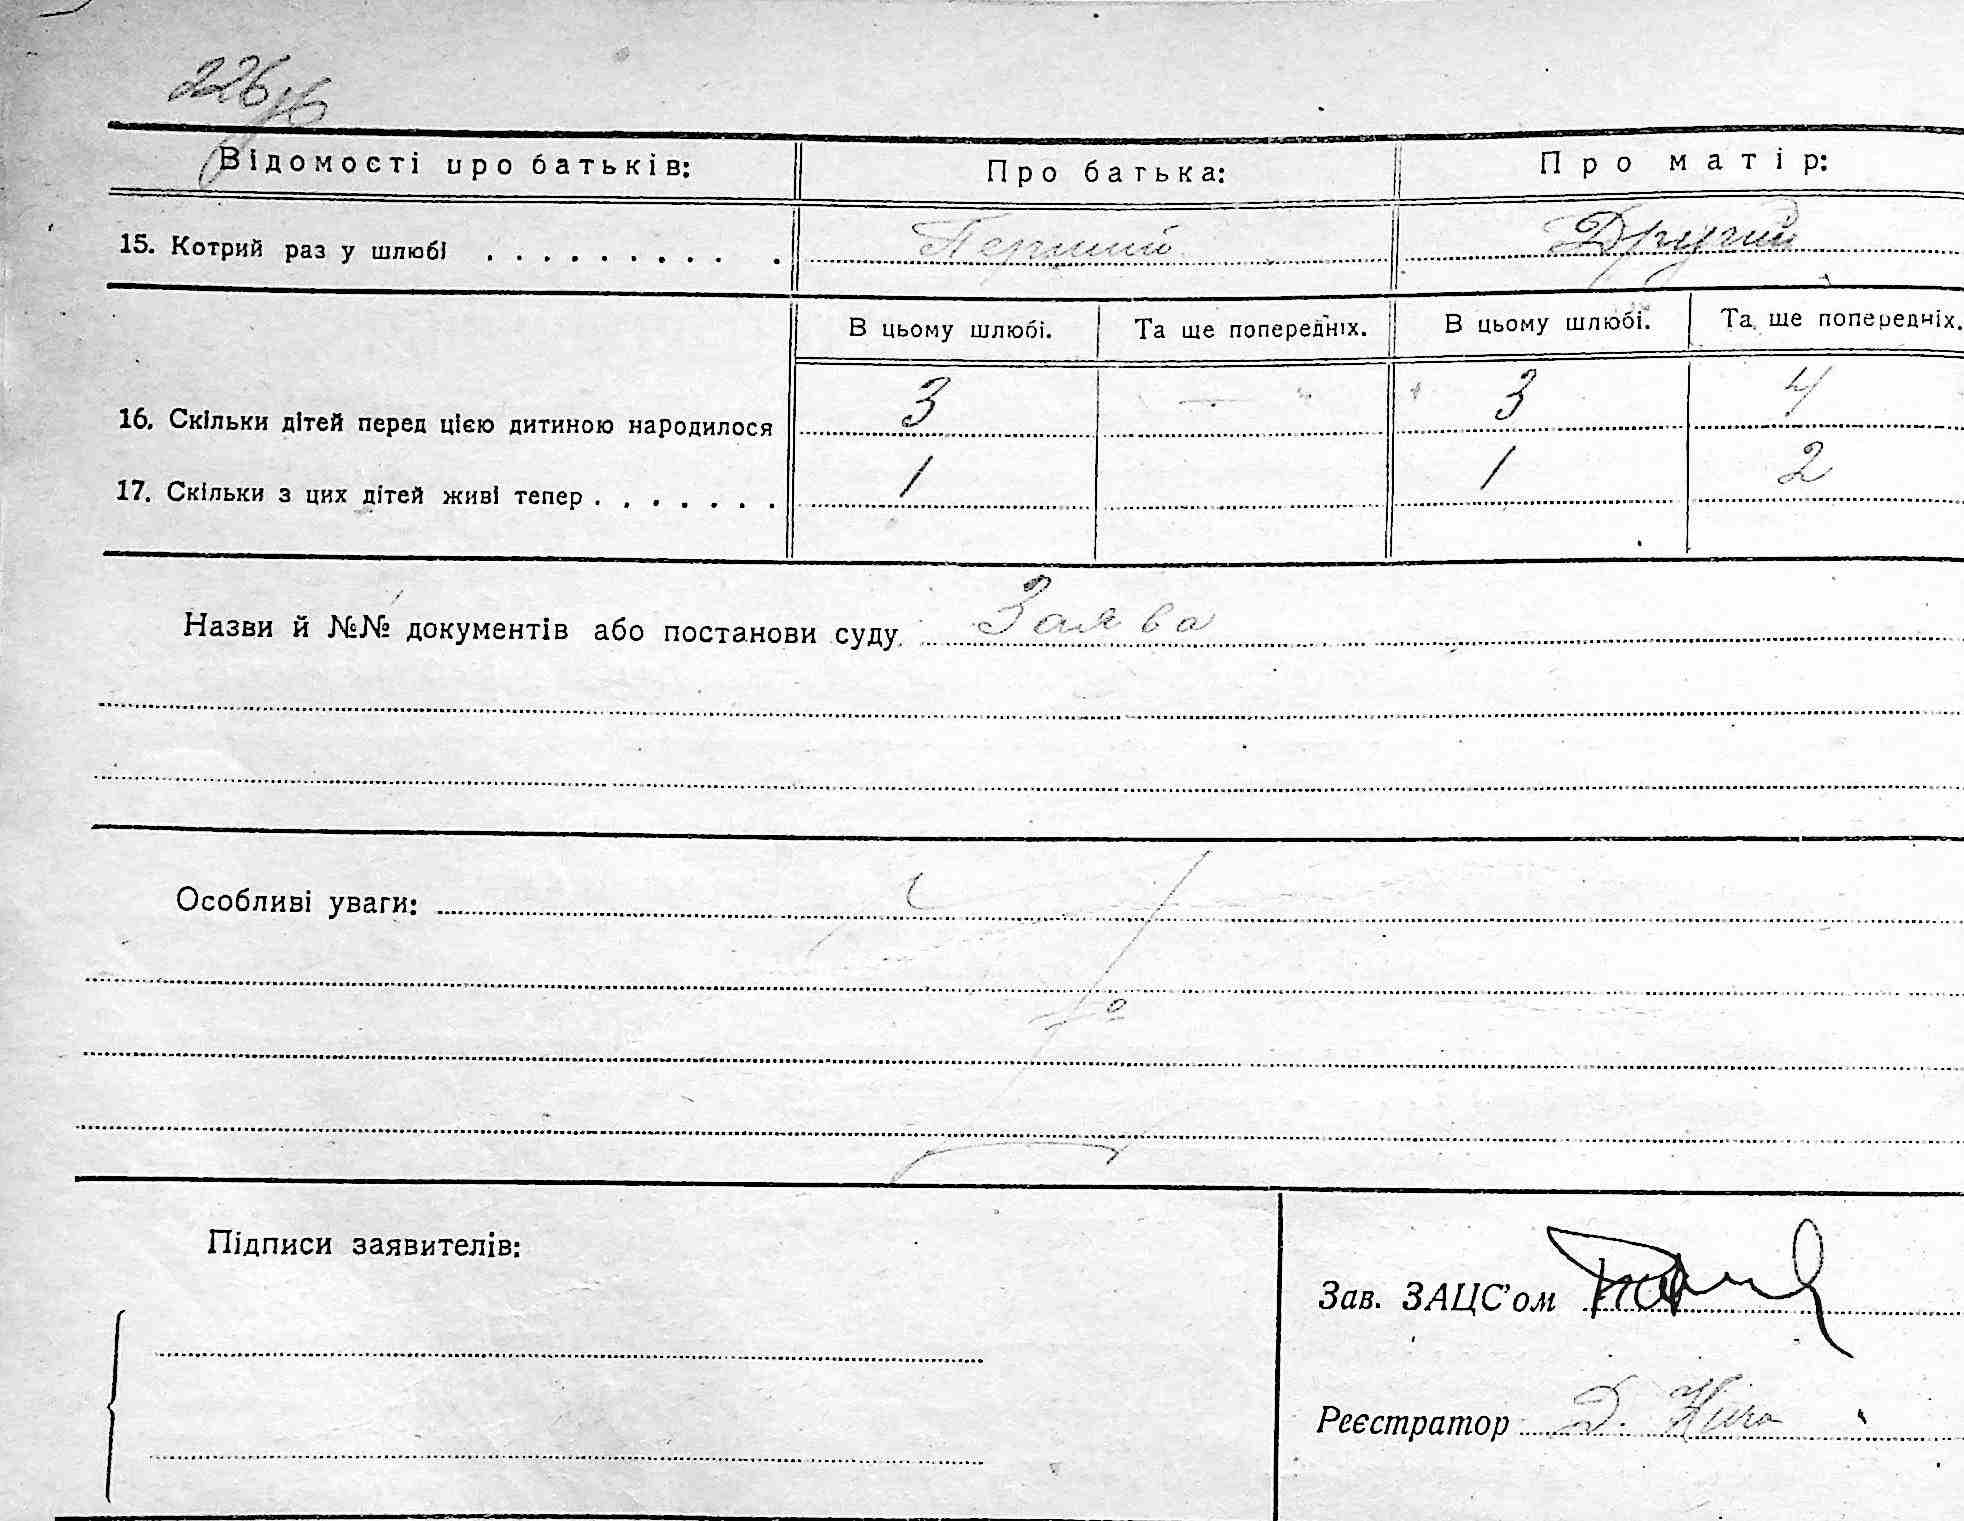 226
Відомості про батьків: Про батька: Про матір:
15. Котрий раз у шлюбі Перший Другий
В цьому шлюбі. Та ще попередніх. В цьому шлюбі. Та ще попередніх.
16. Скільки дітей перед цією дитиною народилося 3 — 3 4
17. Скільки з цих дітей живі тепер 1 1 2
Назви й №№ документів або постанови суду Заява
Особливі уваги:
Підписи заявителів:
Зав. ЗАЦС'ом
Реєстратор Д.